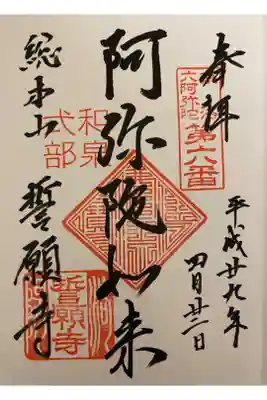 奉拝
第六番
六阿弥陀
平成廿九年
四月廿二日
阿弥陀如来
和泉
式部
総本山 誓願寺
誓願寺